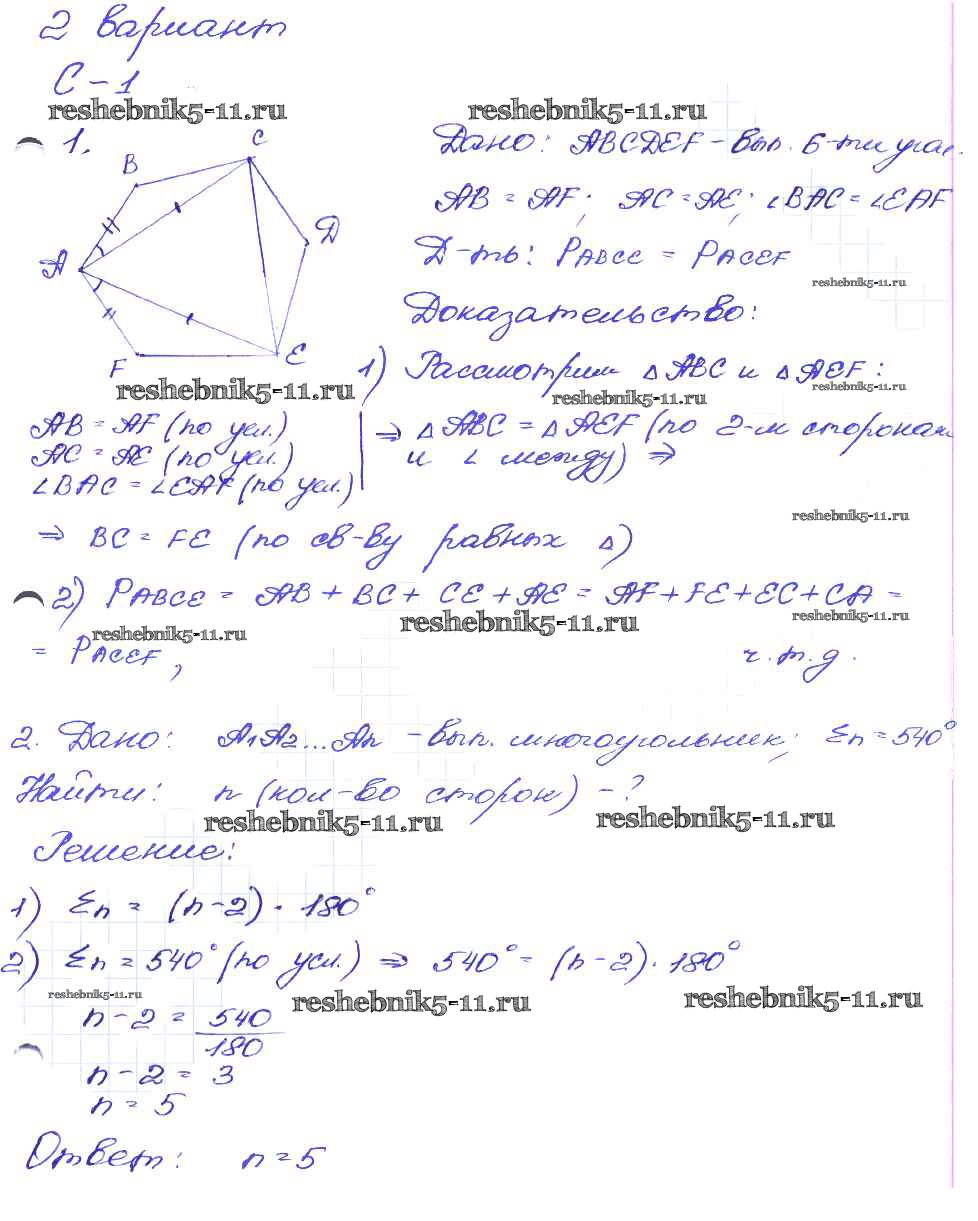 2 вариант
С – 1
reshebnik5-11.ru
reshebnik5-11.ru
1.
A
B
C
D
E
F
Дано: ABCDEF – вып. 6-ти угол.
AB = AF; AC = AE; ∠BAC = ∠EAF
Д-ть: PABCE = PACEF
reshebnik5-11.ru
Доказательство:
1) Рассмотрим △ABC и △AEF:
reshebnik5-11.ru
reshebnik5-11.ru
reshebnik5-11.ru
AB = AF (по усл.)
AC = AE (по усл.)
∠BAC = ∠EAF (по усл.)
⇒ △ABC = △AEF (по 2-м сторонам
и ∠ между) ⇒
reshebnik5-11.ru
⇒ BC = FE (по св-ву равных △)
2) PABCE = AB + BC + CE + AE = AF + FE + EC + CA =
reshebnik5-11.ru
reshebnik5-11.ru
reshebnik5-11.ru
= PACEF, ч.т.д.
2. Дано: A1A2...An – вып. многоугольник; Σn = 540°
Найти: n (кол-во сторон) – ?
reshebnik5-11.ru
reshebnik5-11.ru
Решение:
1) Σn = (n – 2) · 180°
2) Σn = 540° (по усл.) ⇒ 540° = (n – 2) · 180°
reshebnik5-11.ru
reshebnik5-11.ru
reshebnik5-11.ru
n – 2 = 540
180
n – 2 = 3
n = 5
Ответ: n = 5